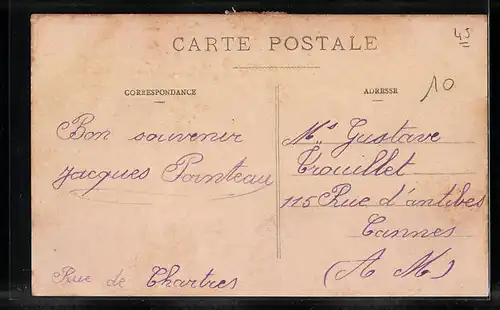 CARTE POSTALE
45
10
CORRESPONDANCE
ADRESSE
Bon souvenir
Jacques Pointeau
Rue de Chartres
Mr Gustave
Trouillet
115 Rue d'antibes
Cannes
(A M)